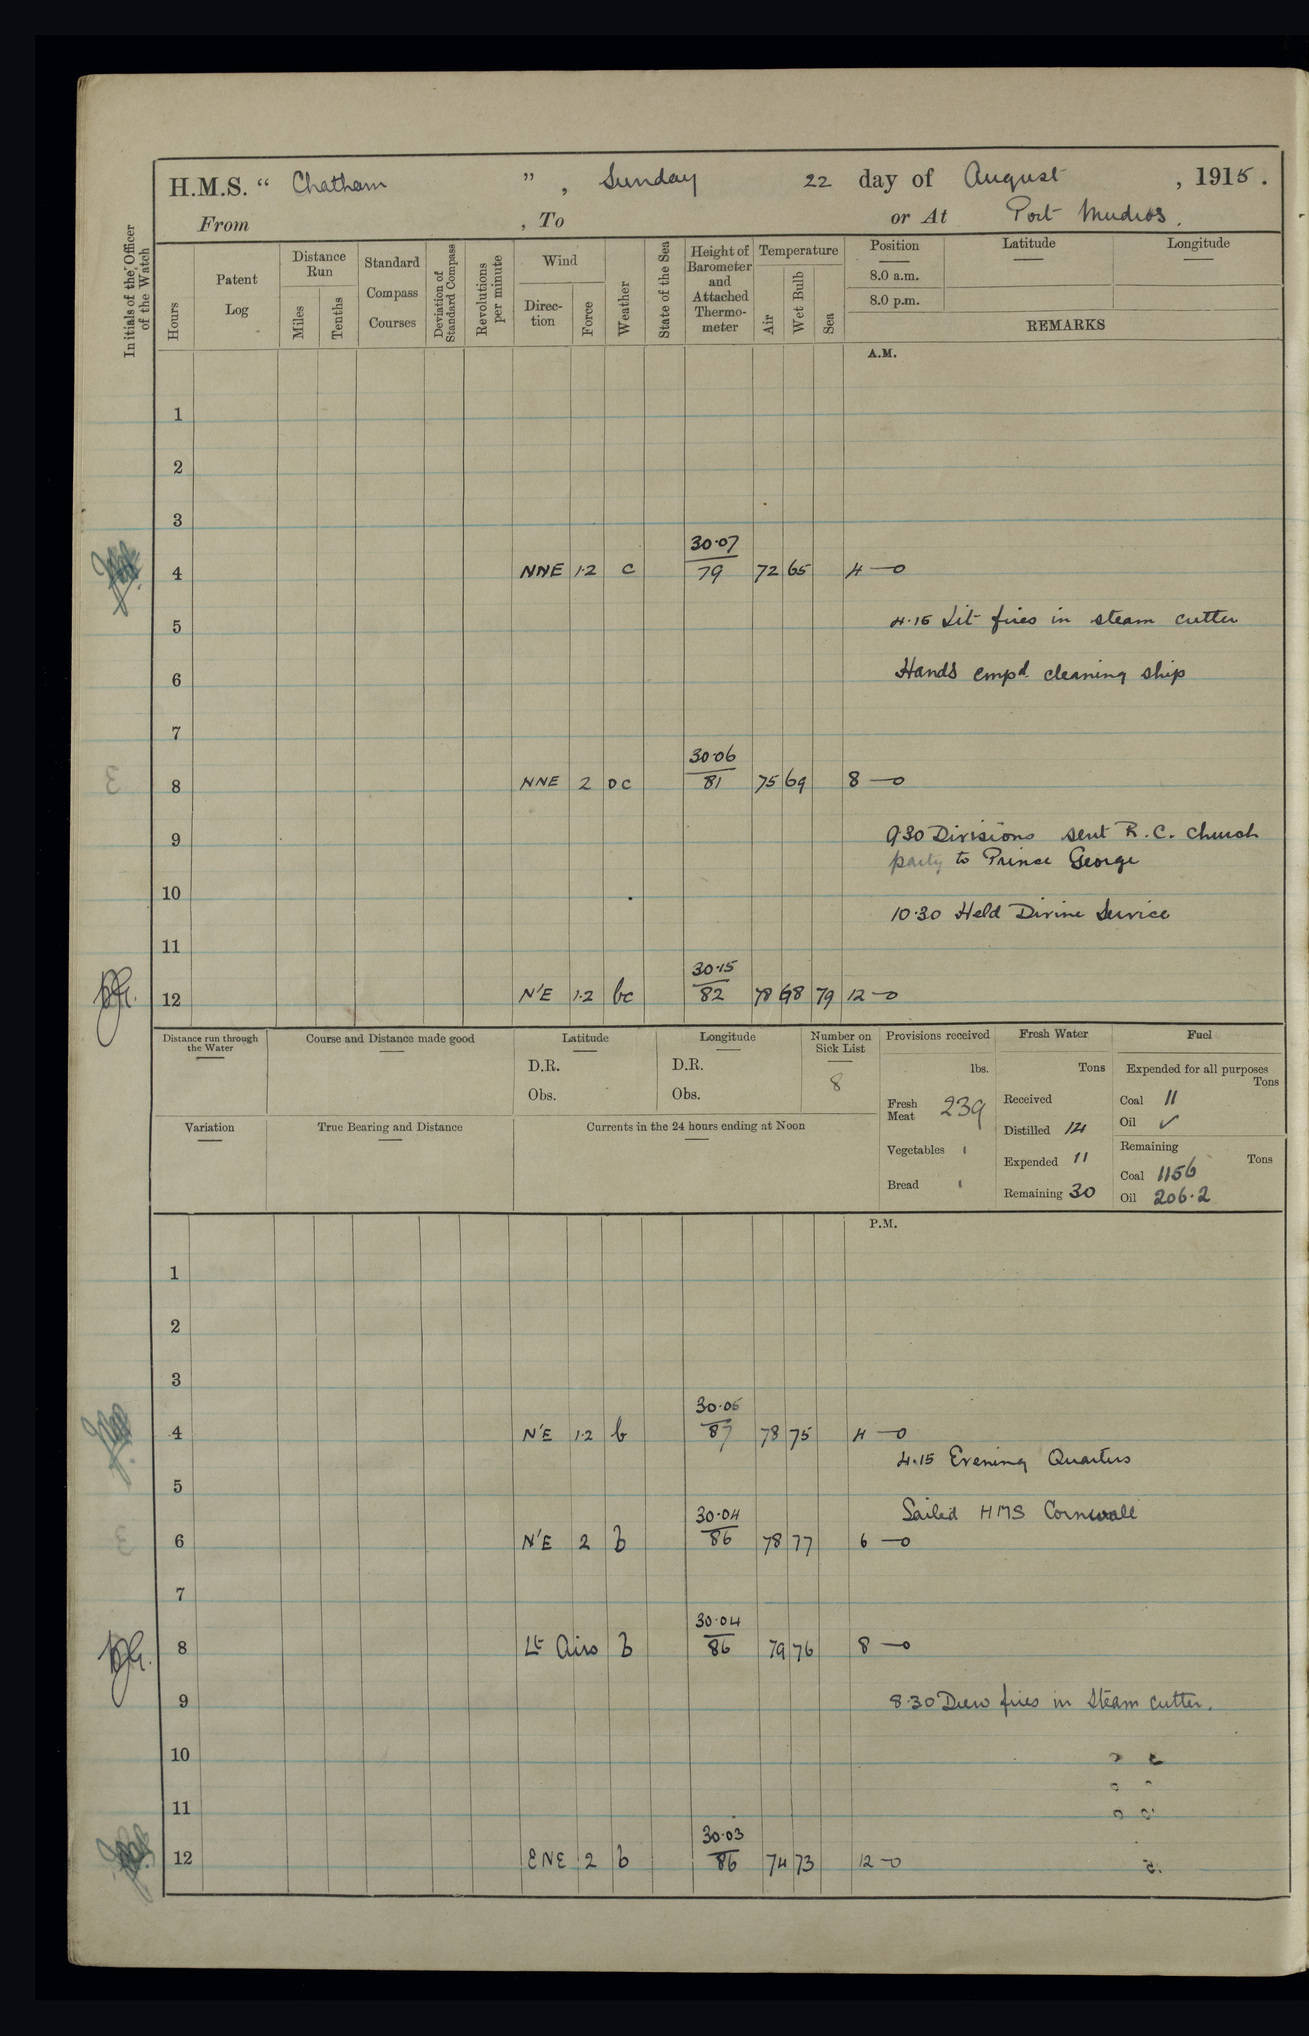 H.M.S. “ Chatham ” , Sunday 22 day of August , 1915 .
From , To or At Port Mudros .
Initials of the Officer of the Watch
Hours
Patent Log
Distance Run
Miles
Tenths
Standard Compass Courses
Deviation of Standard Compass
Revolutions per minute
Wind
Direc-tion
Force
Weather
State of the Sea
Height of Barometer and Attached Thermo-meter
Temperature
Air
Wet Bulb
Sea
Position
8.0 a.m.
8.0 p.m.
Latitude
Longitude
REMARKS
A.M.
1
2
3
30.07
4 NNE 1.2 c 79 72 65 4 —o
4.15 Lit fires in steam cutter
5
Hands empd. cleaning ship
6
7
30.06
8 NNE 2 oc 81 75 69 8 —o
9.30 Divisions sent R.C. church
9
party to Prince George
10
10.30 Held Divine Service
11
30.15
12 N'E 1.2 bc 82 78 68 79 12 —o
Distance run through the Water
Course and Distance made good
Latitude
D.R.
Obs.
Longitude
D.R.
Obs.
Number on Sick List
8
Provisions received
lbs.
Fresh Meat 239
Vegetables
Bread
Fresh Water
Tons
Received
Distilled 14
Expended 11
Remaining 30
Fuel
Expended for all purposes
Tons
Coal 11
Oil ✓
Remaining
Tons
Coal 1156
Oil 206.2
Variation
True Bearing and Distance
Currents in the 24 hours ending at Noon
P.M.
1
2
3
30.05
4 N'E 1.2 b 87 78 75 4 —o
4.15 Evening Quarters
5
Sailed HMS Cornwall
30.04
6 N'E 2 b 86 78 77 6 —o
7
30.04
8 Lt Airs b 86 79 76 8 —o
9 8.30 Drew fires in steam cutter.
10
11
30.03
12 ENE 2 b 86 74 73 12 —o